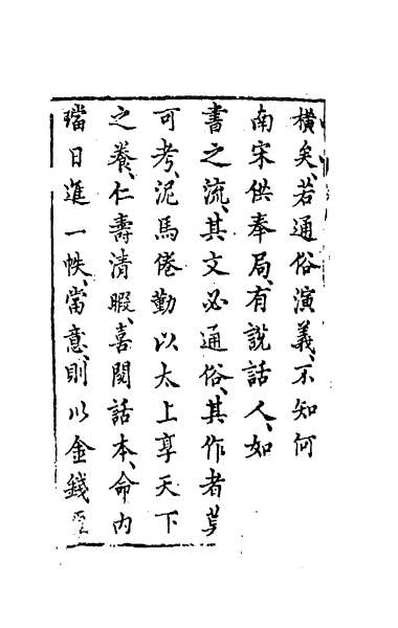 橫矣、若通俗演義、不知何
南宋供奉局、有說話人、如
書之流、其文必通俗、其作者莫
可考、泥馬倦勤、以太上享天下
之養、仁壽清暇、喜閱話本、命內
璫日進一帙、當意、則以金錢